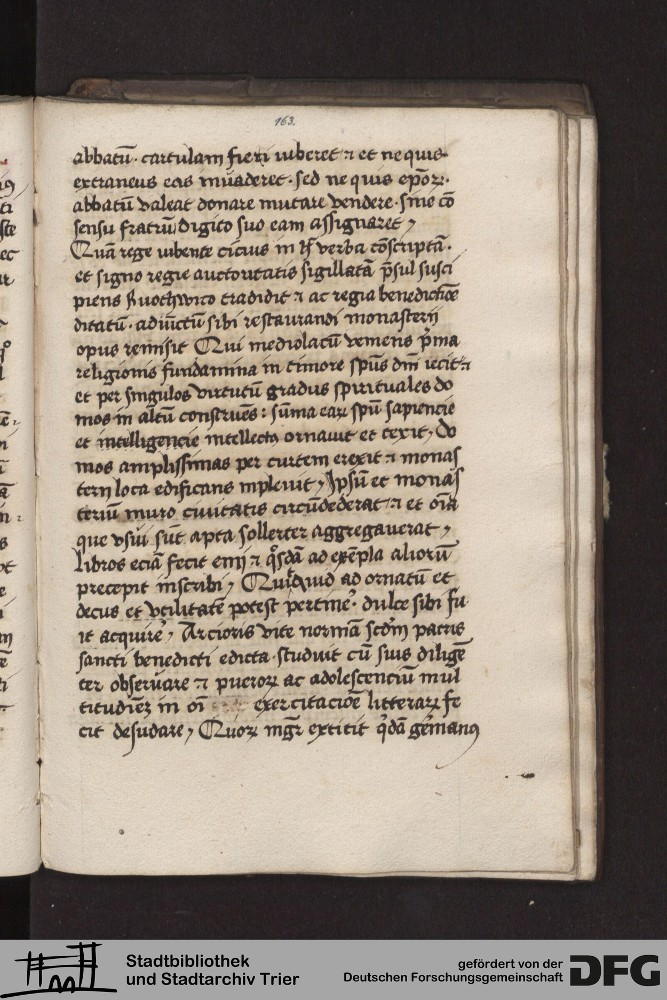 163.
abbatū · cartulam fieri iuberet ⁊ et ne quis
extraneus eas inuaderet · sed ne quis ep̄oꝝ ·
abbatū valeat donare mutare vendere · sine cō
sensu fratrū digito suo eam assignaret ,
Quā rege iubente cicius in verba cōscriptā ·
et signo regie auctoritatis sigillatā p̄sul susci
piens Ruothwico tradidit ⁊ ac regia benedictiōe
ditatū · adiūctū sibi restaurandi monasterij
opus remisit Qui mediolacū veniens p̄ma
religionis fundamina in timore spūs dn̄i iecit ⁊
et per singulos virtutū gradus spirituales do
mos in altū construēs : sūma eaꝝ spū sapiencie
et intelligencie intellectꝫ ornauit et texit , Do
mos amplissimas per curtem erexit ⁊ monas
terij loca edificans inpleuit , Ipsū et monas
terium muro ciuitatis circūdederat ⁊ et oīa
que vsui sūt apta sollerter aggregauerat ,
Libros eciā fecit ⁊ q̊sdā ad exēpla aliorū
precepit inscribi , Quidquid ad ornatū et
decus et vtilitatē potest pertinē᷒ · dulce sibi fu
it acquirē᷒ , Arcioris vite normā scdm̄ patris
sancti benedicti edicta · studuit cū suis diligē
ter obseruare ⁊ pueroꝝ ac adolescentiū mul
titudinē in oī exercitaciōe litteraꝝ fe
cit desudare , Quoꝝ mgr̄ extitit q̇dā germanꝰ
Stadtbibliothek
und Stadtarchiv Trier
gefördert von der
Deutschen Forschungsgemeinschaft
DFG